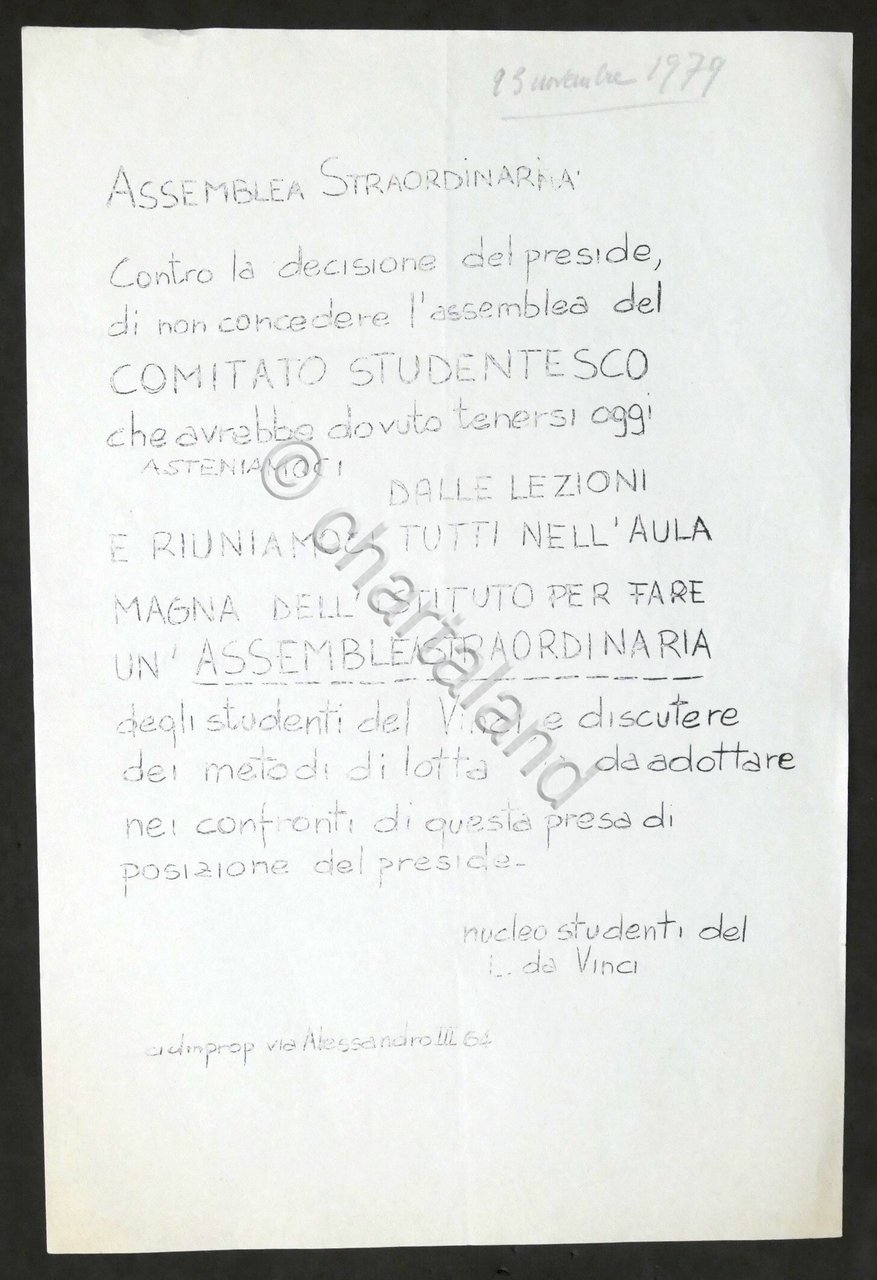 novembre 1979
ASSEMBLEA STRAORDINARIA
Contro la decisione del preside,
di non concedere l'assemblea del
COMITATO STUDENTESCO
che avrebbe dovuto tenersi oggi
ASTENIAMOCI
DALLE LEZIONI
E RIUNIAMOCI TUTTI NELL'AULA
MAGNA DELL'ISTITUTO PER FARE
UN'ASSEMBLEA STRAORDINARIA
degli studenti del Vinci e discutere
dei metodi di lotta da adottare
nei confronti di questa presa di
posizione del preside-
nucleo studenti del
L. da Vinci
via Alessandro III 61
© chartaland